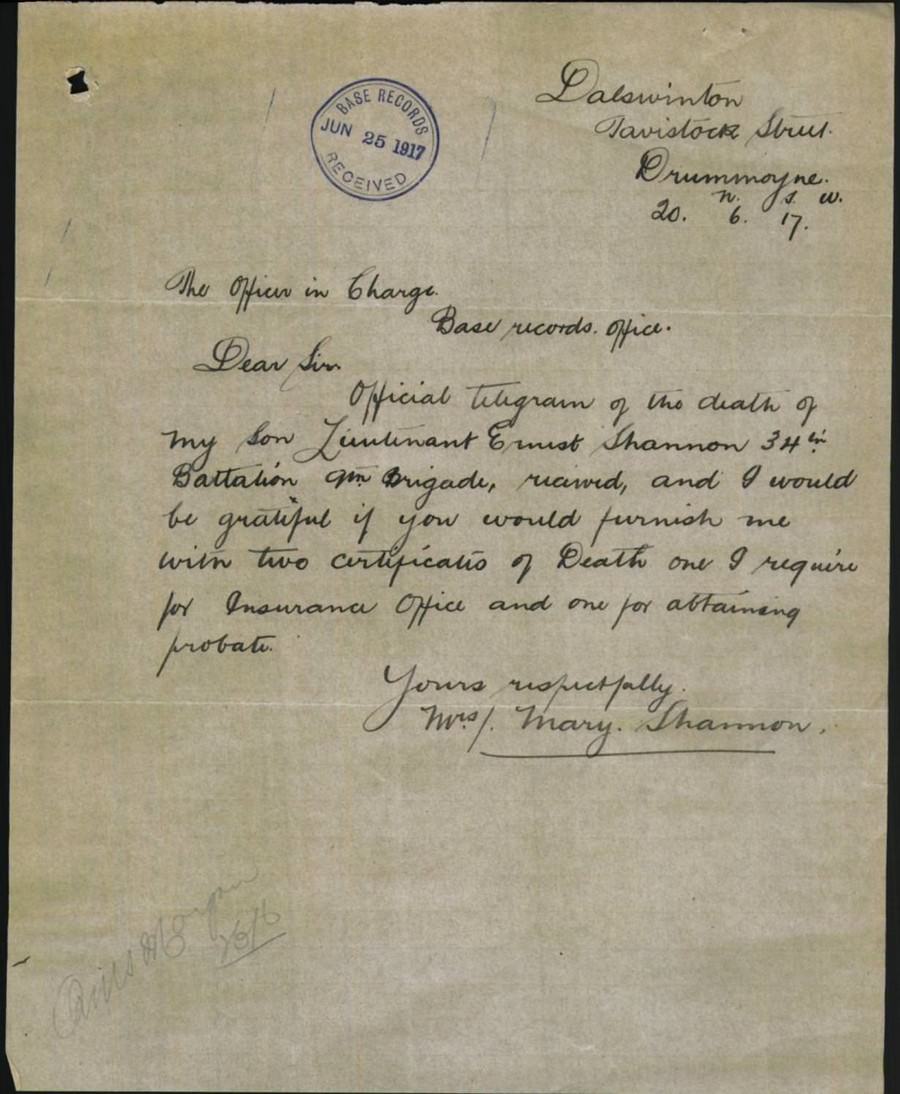 BASE RECORDS
JUN 25 1917
RECEIVED
Dalswinton
Tavistock Street.
Drummoyne.
N. S. W.
20. 6. 17.
The Officer in Charge.
Base records. Office.
Dear Sir.
Official telegram of the death of
my Son Lieutenant Ernest Shannon 34th
Battalion 9th Brigade, recieved, and I would
be grateful if you would furnish me
with two certificates of Death one I require
for Insurance Office and one for obtaining
probate.
Yours respectfully.
Mrs/. Mary. Shannon.
26/6